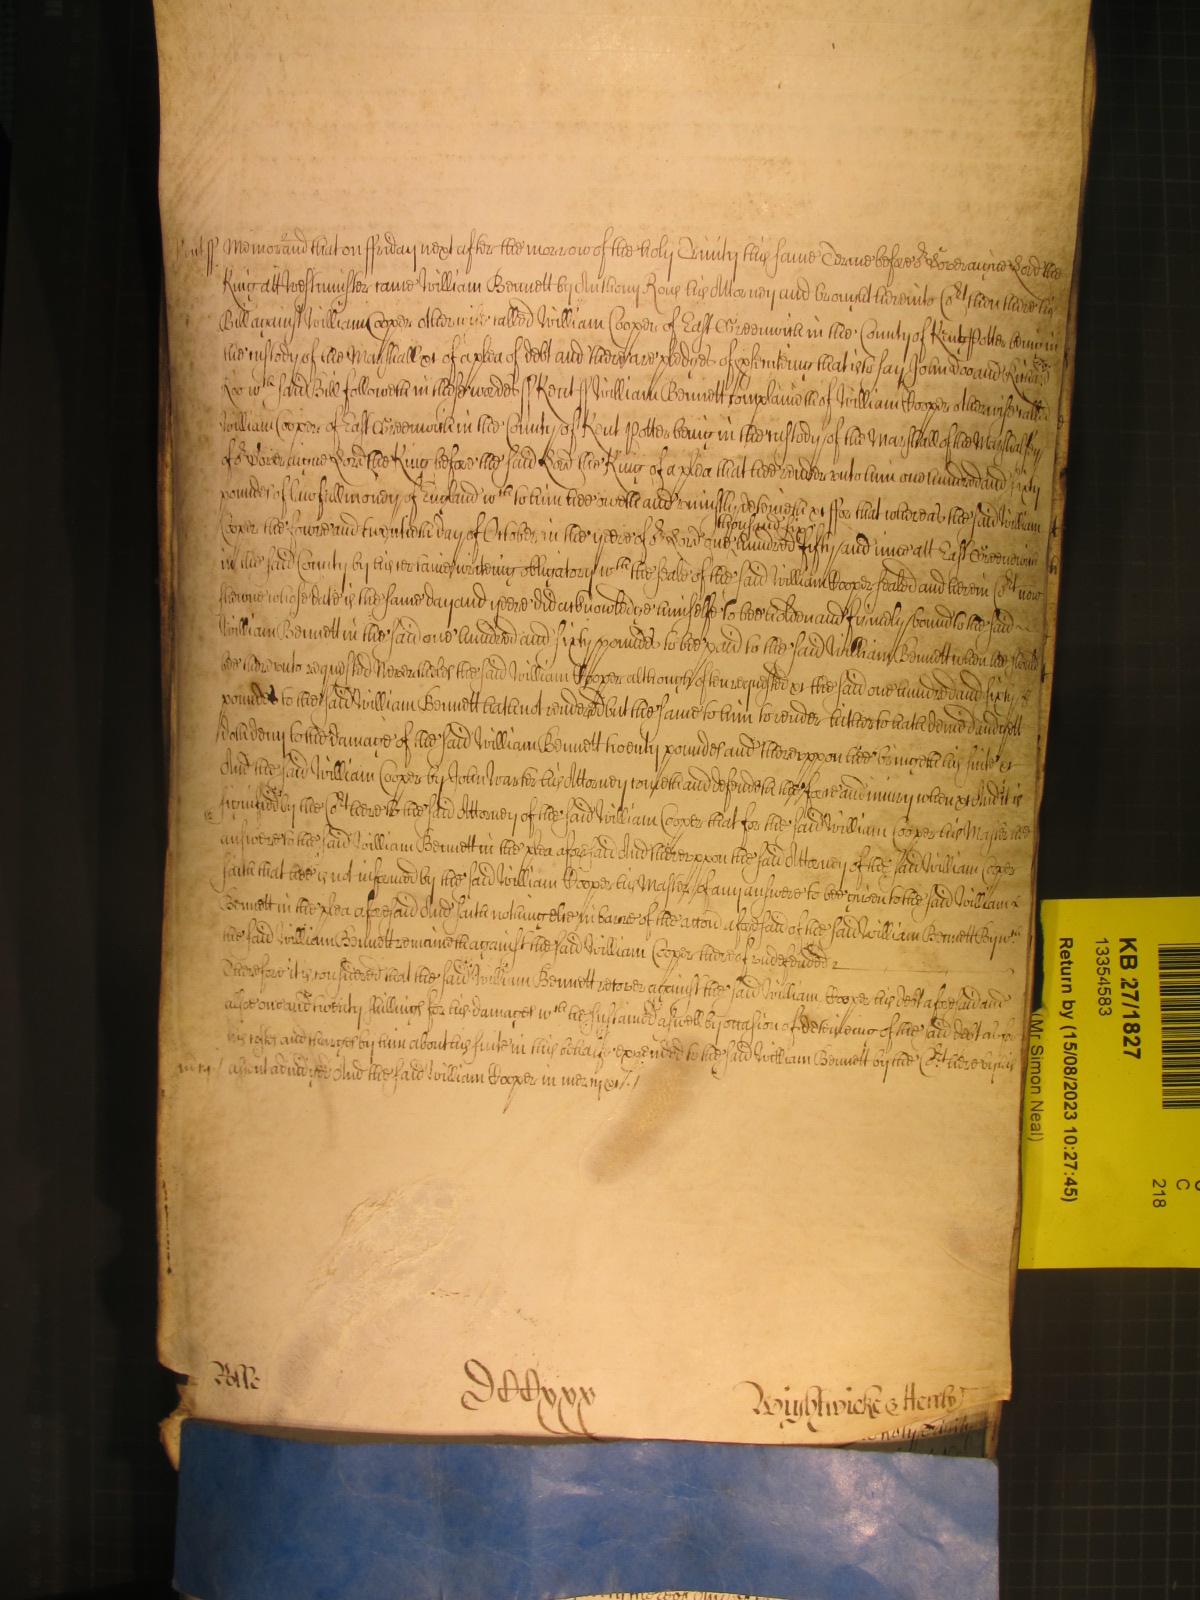 Kent ss Memorand that on ffriday next after the morrow of the holy Trinity this same Terme before or Soveraigne Lord the
King att Westminster came William Bennett by Anthony Rous his Attorney and brought here into Cort then there his
Bill against William Cooper otherwise called William Cooper of East Greenwich in the County of Kent Potter being in
the custody of the Marshall &c of a plea of debt and there are pledges of prosecuting that is to say John Doo and Richard
Roo wch said Bill followeth in these wordes ss Kent ss William Bennett complaineth of William Cooper otherwise called
William Cooper of East Greenwich in the County of Kent Potter being in the custody of the Marshall of the Marshalsey
of or Soveraigne Lord the King before the said Lord the King of a plea that hee render unto him one hundred and sixty
poundes of lawfull money of England wch to him hee oweth and uniustly deteineth &c ffor that whereas the said William
Cooper the fowre and twentieth day of October in the yeere of or Lord one thousand six hundred fifty and nine att East Greenwich
in the said County by his certaine writeing obligatory wth the seale of the said William Cooper sealed and herein Cort now
shewne whose date is the same day and yeere did acknowledge himselfe to bee holden and firmely bound to the said
William Bennett in the said one hundred and sixty poundes to bee paid to the said William Bennett when hee should
bee thereunto requested Neverthelesse the said William Cooper although often requested &c the said one hundred and sixty
poundes to the said William Bennett hath not rendered but the same to him to render hitherto hath denied and yett
doth deny to the damage of the said William Bennett twenty poundes and thereuppon hee bringeth his suite &c
And the said William Cooper by John Warter his Attorney cometh and defendeth the force and iniury when &c And it is
signified by the Cort here to the said Attorney of the said William Cooper that for the said William Cooper his Master hee
answere to the said William Bennett in the plea aforesaid And thereuppon the said Attorney of the said William Cooper
saith that hee is not informed by the said William Cooper his Master of any answere to bee given to the said William
Bennett in the plea aforesaid And saith nothing else in barre of the accon aforesaid of the said William Bennett By wch
the said William Bennett remaineth against the said William Cooper thereof undefended
Therefore it is considered that the said William Bennett recover against the said William Cooper his debt aforesaid and
alsoe one and twenty shillings for his damages wch hee sustained aswell by occasion of deteineing of the said debt as for
his costes and charges by him about his suite in this behalfe expended to the said William Bennett by the Cort here by his
mcy assent adiudged And the said William Cooper in mercy &c
Rolle
DCCCxxx
Wightwicke & Henly
holy Trinity
KB 27/1827
13354583
Return by (15/08/2023 10:27:45)
(Mr Simon Neal)
C
218